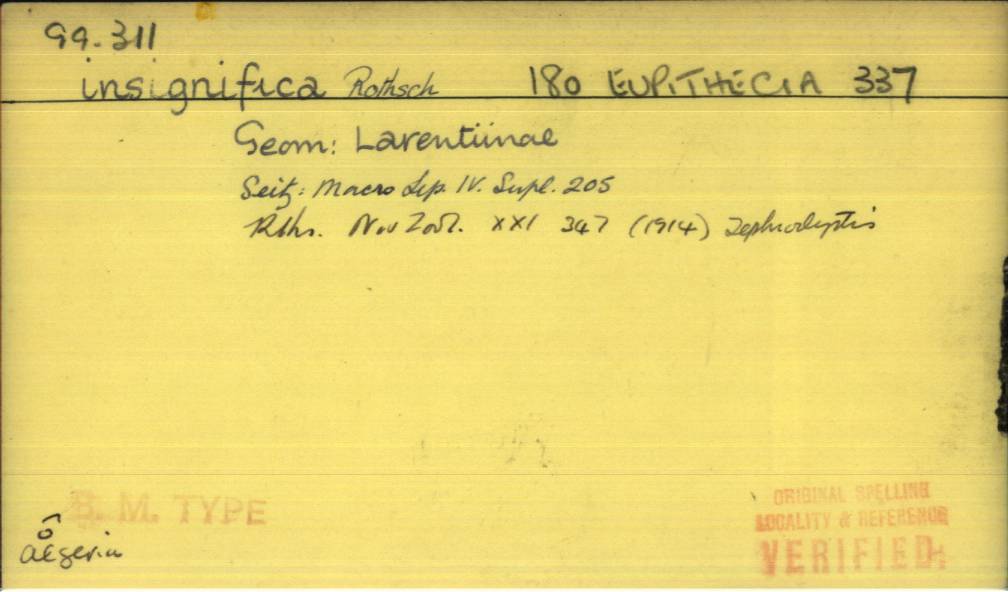 99.311
insignifica Rothsch 180 EUPITHECIA 337
Geom: Larentiinae
Seitz: Macro Lep. IV. Supl. 205
Rths. Nov Zool. XXI 347 (1914) Tephroclystis
B. M. TYPE
Algeria
ORIGINAL SPELLING
LOCALITY & REFERENCE
VERIFIED.